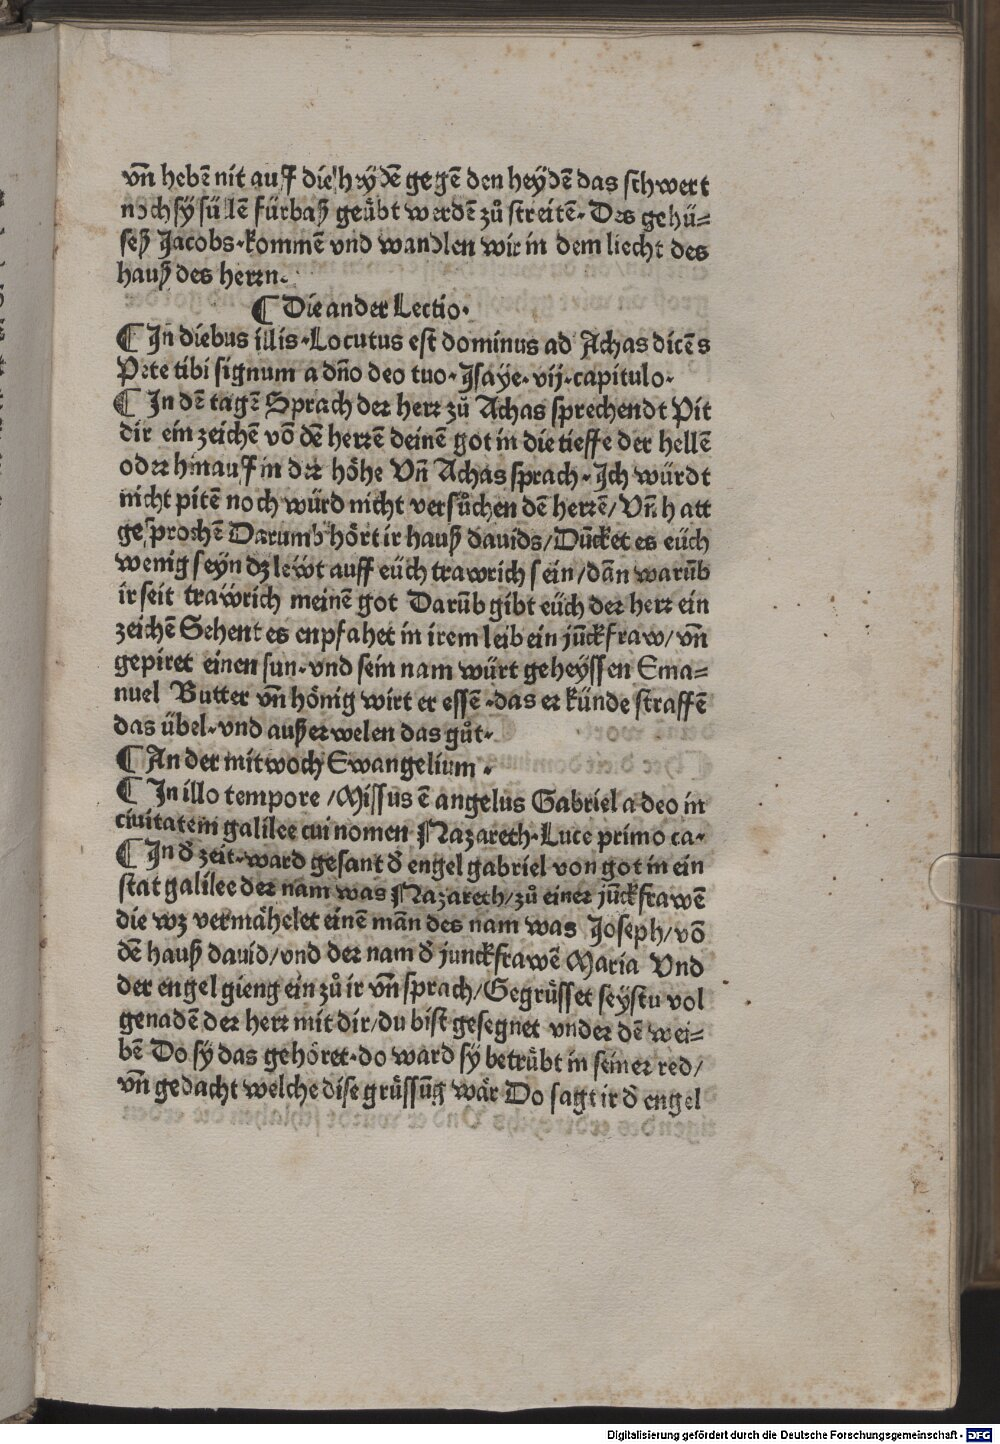 vñ hebē nit auff die heydē gegē den heydē das schwert
noch sy süllē fürbaß geübt werdē zů streitē. Des gehü=
seß Jacobs. kommē vnd wandlen wir in dem liecht des
hauß des herrn.
¶ Die ander Lectio.
¶ In diebus illis. Locutus est dominus ad Achas dicēs
Pete tibi signum a dño deo tuo. Isaye. vij. capitulo.
¶ In dē tagē Sprach der herr zů Achas sprechendt Pit
dir ein zeichē vō dē herrē deinē got in die tieffe der hellē
oder hinauff in der höhe Vñ Achas sprach. Ich würdt
nicht pitē noch würd nicht versůchen dē herrē/ Vñ hatt
gesprochē Darumb hört ir hauß dauids/ Dücket es eüch
wenig seyn dz leẅt auff eüch trawrich sein/ dañ warūb
ir seit traẅrich meinē got Darūb gibt eüch der herr ein
zeichē Sehent es enpfahet in irem leib ein jūckfraw/ vñ
gepiret einen sun. vnd sein nam würt geheyssen Ema=
nuel Butter vñ hönig wirt er essē. das er künde straffē
das übel. vnd außerwelen das gůt.
¶ An der mitwoch Ewangelium.
¶ In illo tempore / Missus ē angelus Gabriel a deo in
ciuitatem galilee cui nomen Nazareth. Luce primo ca.
¶ In d̄ zeit. ward gesant d̄ engel gabriel von got in ein
stat galilee der nam was Nazareth/ zů einer jūckfrawē
die wz vermähelet einē mān des nam was Joseph/ vō
dē hauß dauid/ vnd der nam d̄ junckfrawē Maria Vnd
der engel gieng ein zů ir vñ sprach/ Gegrüsset seystu vol
genadē der herr mit dir/ du bist gesegnet vnder dē wei=
bē Do sy das gehöret. do ward sy betrübt in seiner red/
vñ gedacht welche dise grüssūg wär Do sagt ir d̄ engel
Digitalisierung gefördert durch die Deutsche Forschungsgemeinschaft - DFG